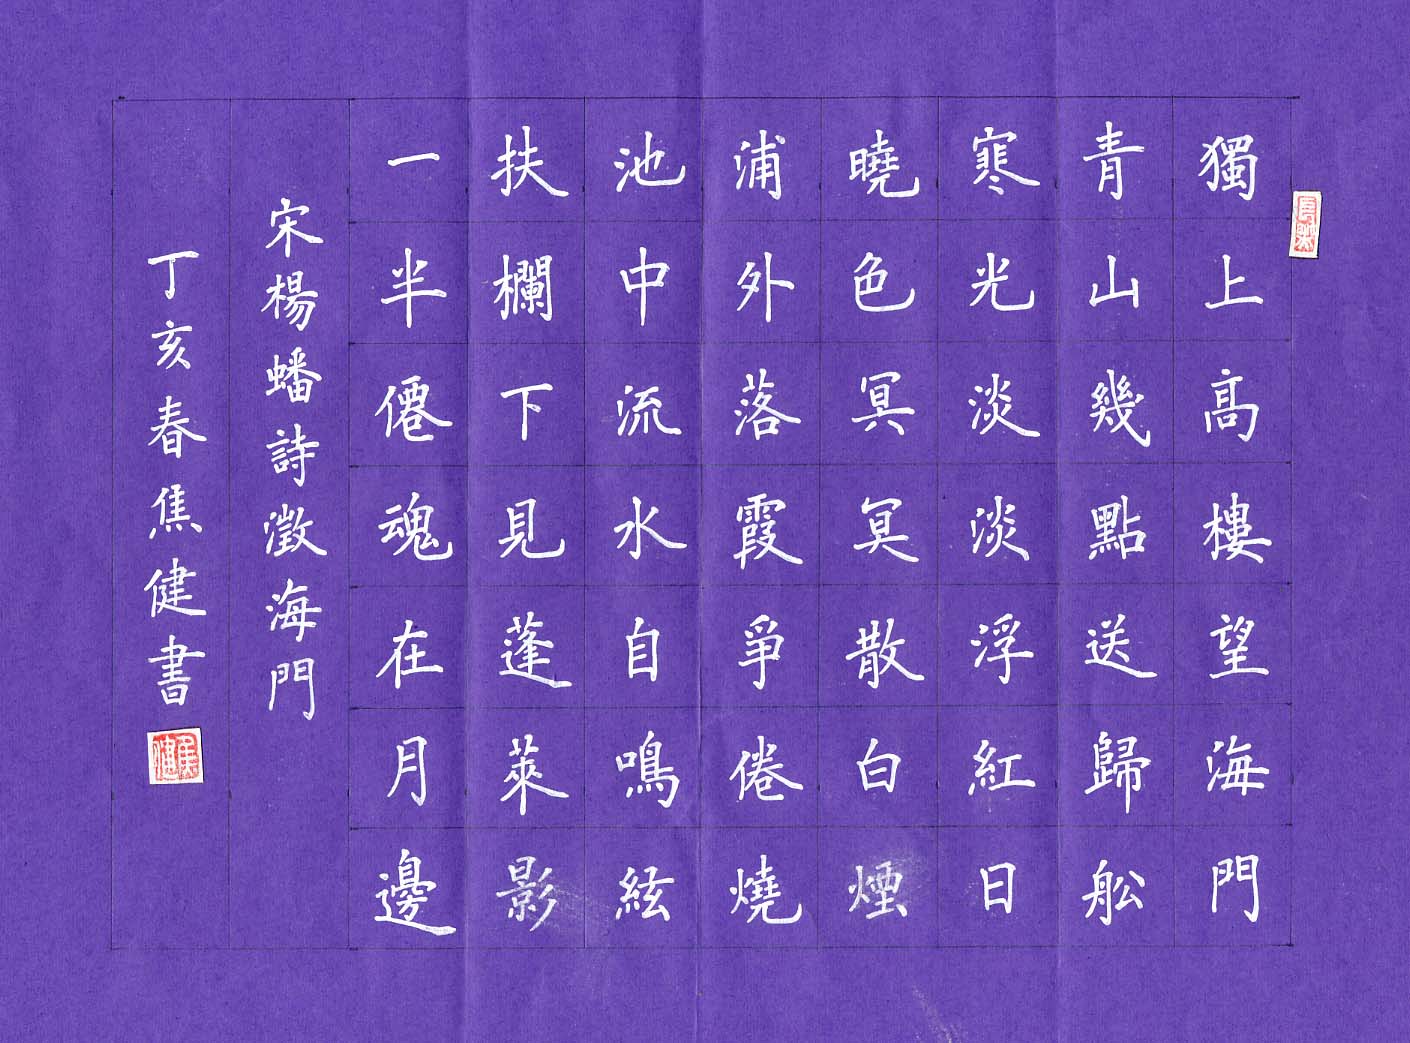 獨上高樓望海門
青山幾點送歸舩
寒光淡淡浮紅日
曉色冥冥散白煙
浦外落霞爭倦燒
池中流水自鳴絃
扶欄下見蓬萊影
一半僊魂在月邊
宋楊蟠詩澂海門
丁亥春焦健書
焦健